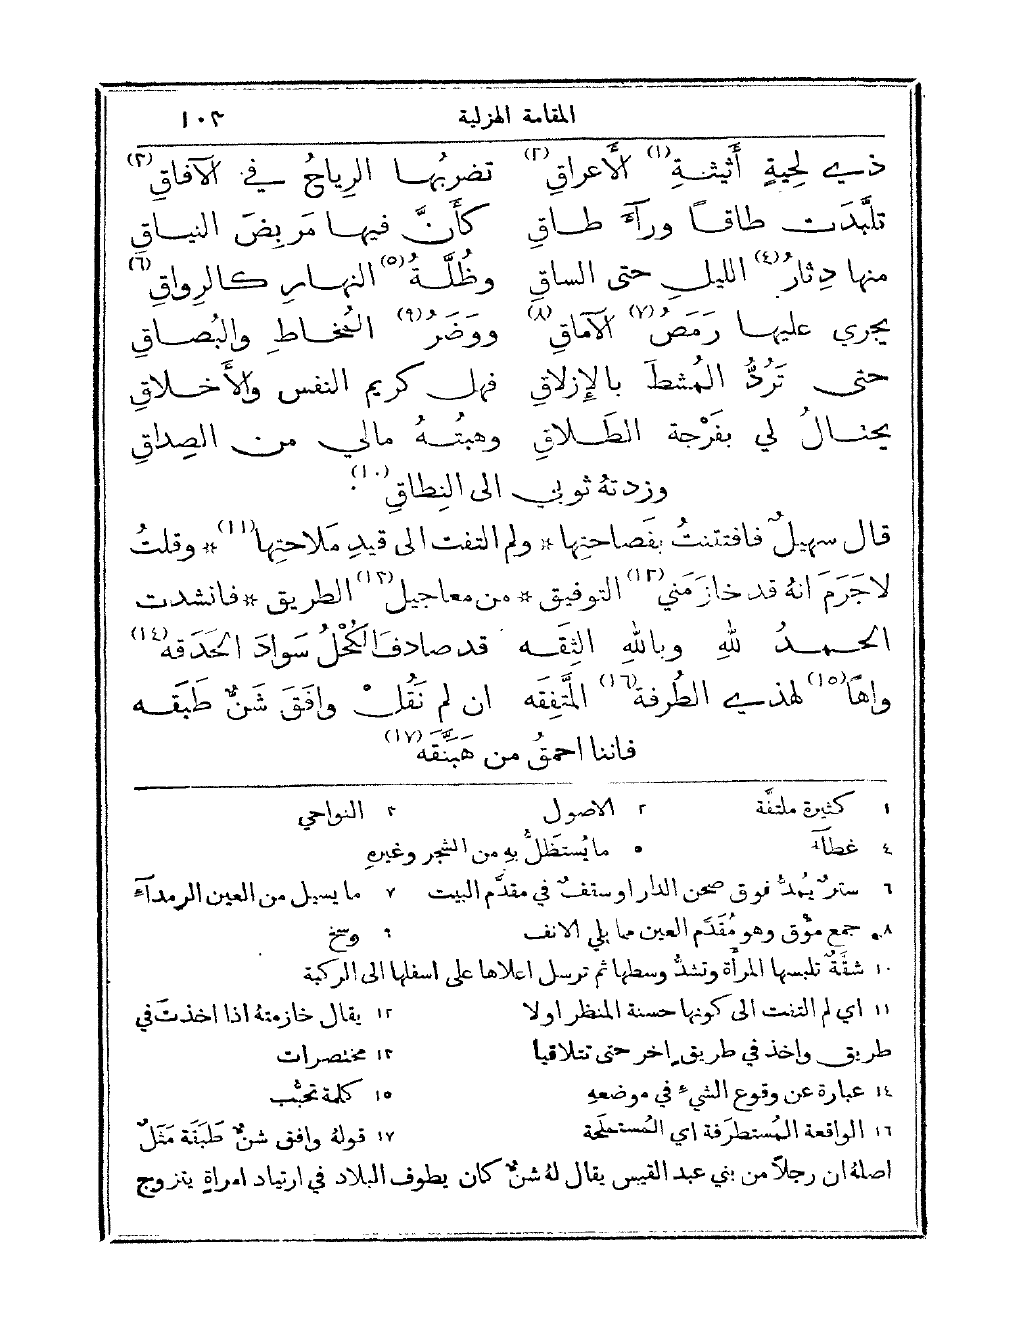 المقامة الهزلية ١٠٣
ذي لِحيةٍ أَثيثةِ(١) الأَعراقِ(٢) تضربُها الرِياحُ في الآفاقِ(٣)
تلبَّدَت طاقًا ورآءَ طاقِ كأَنَّ فيها مَربِضَ النياقِ
منها دِثارُ(٤) الليلِ حتى الساقِ وظُلَّةُ(٥) النهارِ كالرِواقِ(٦)
يجري عليها رَمَصُ(٧) الآماقِ(٨) ووَضَرُ(٩) المُخاطِ والبُصاقِ
حتى تَرُدُّ المُشطَ بالإِزلاقِ فهل كريم النفس والأَخلاقِ
يحتالُ لي بفَرْجة الطَلاقِ وهبتُهُ مالي من الصِداقِ
وزدتهُ ثوبي الى النِطاقِ(١٠).
قال سهيلٌ فافتتنتُ بفَصاحتِها * ولم التفت الى قيدِ مَلاحتِها(١١) * وقلتُ
لاجَرَمَ انهُ قد خازَمَني(١٢) التوفيق * من معاجيل(١٣) الطريق * فانشدت
الحمدُ للهِ وباللهِ الثِقَه قد صادفَ الكُحْلُ سَوادَ الحَدَقه(١٤)
واهًا(١٥) لهذي الطُرفة(١٦) المتَّفِقه ان لم نَقُلْ وافَقَ شَنٌّ طَبَقه
فاننا احمقُ من هَبَنَّقه(١٧)
١ كثيرة ملتفَّة ٢ الاصول ٣ النواحي
٤ غطآءُ ٥ ما يُستظَلُّ بهِ من الشجر وغيرهِ
٦ سترٌ يُمَدُّ فوق صحن الدار او سقفٌ في مقدَّم البيت ٧ ما يسيل من العين الرمدآء
٨ جمع مؤْق وهو مُقدَم العين مما يلي الانف ٩ وسخ
١٠ شقَّةٌ تلبسها المرأَة وتشدُّ وسطها ثم ترسل اعلاها على اسفلها الى الركبة
١١ اي لم التفت الى كونها حسنة المنظر او لا ١٢ يقال خازمتهُ اذا اخذتَ في
طريق واخذ في طريقٍ اخر حتى تتلاقيا ١٣ مختصرات
١٤ عبارة عن وقوع الشيء في موضعهِ ١٥ كلمة تعجُّب
١٦ الواقعة المُستطرَفة اي المُستملَحة ١٧ قولهُ وافق شنٌّ طَبَقَة مَثَلٌ
اصلهُ ان رجلاً من بني عبد القيس يقال لهُ شنٌّ كان يطوف البلاد في ارتياد امراةٍ يتزوج